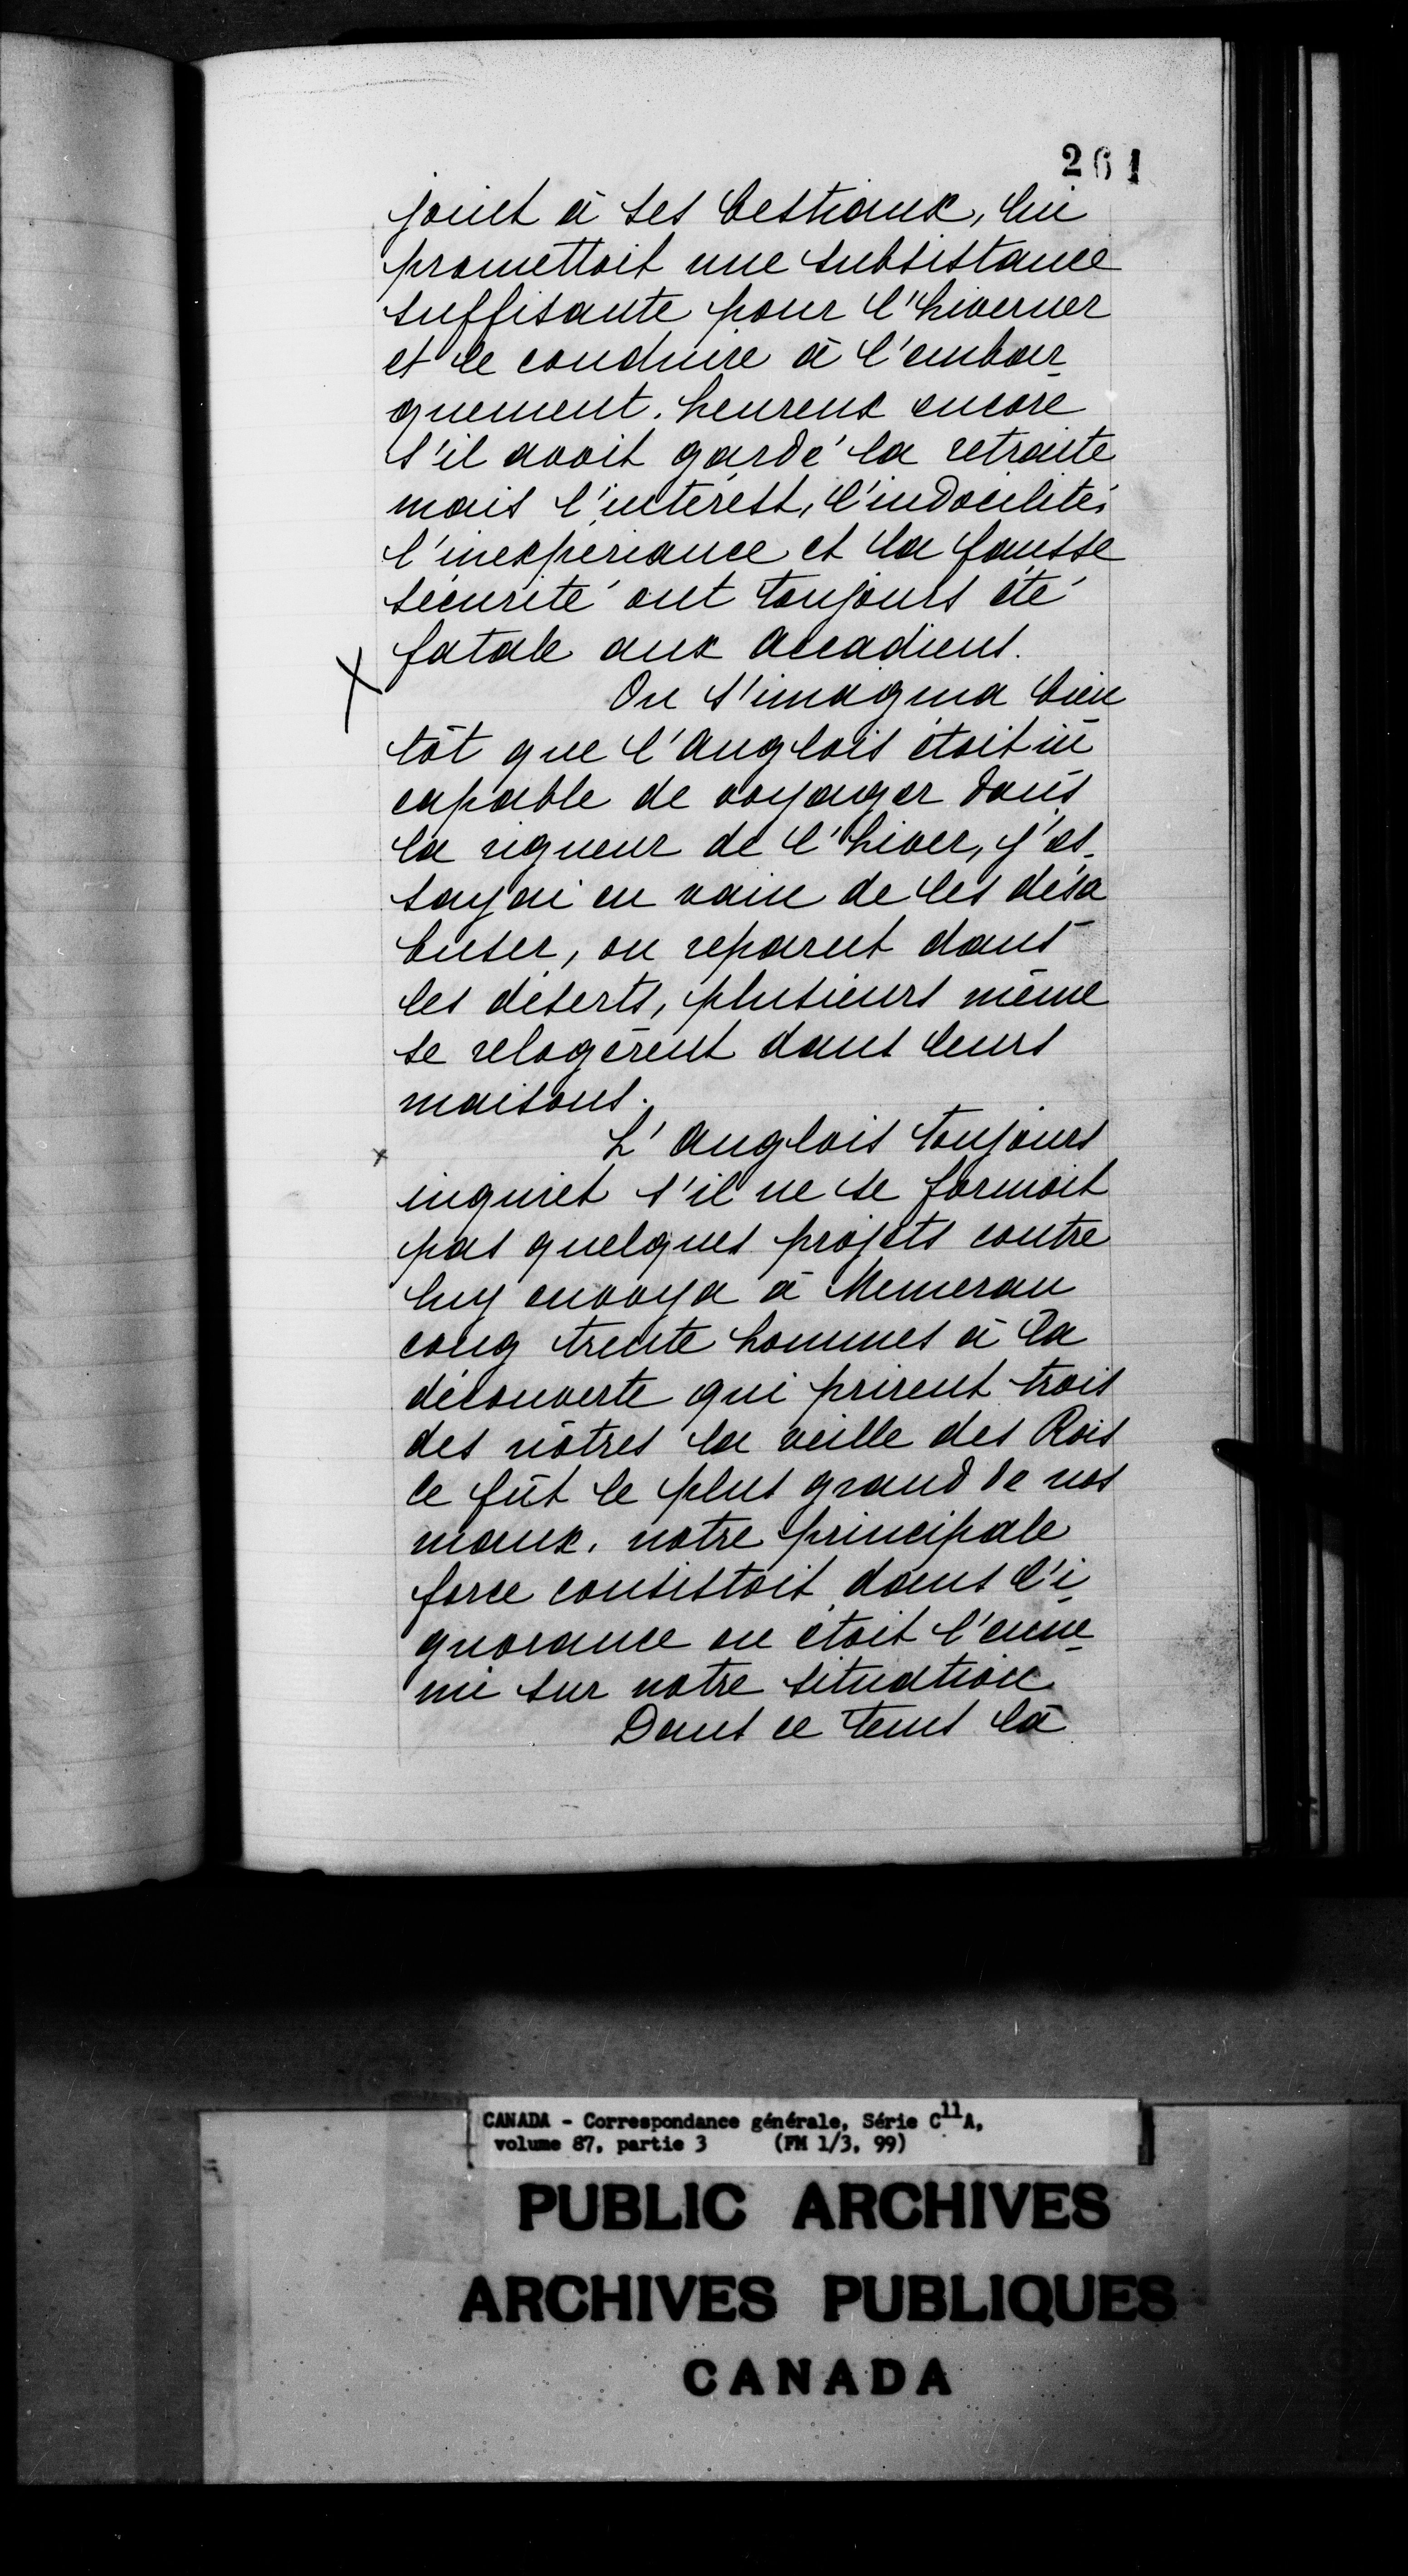 261
joint à ses bestiaux, lui
promettoit une subsistance
suffisante pour l'hiverner
et le conduire à l'embar-
quement. heureux encore
s'il avoit gardé la retraite
mais l'intérêst, l'indocilité,
l'inexpériance et la fausse
sécurité ont toujours été
fatale aux accadiens.
On s'imagina bien
tôt que l'anglois étoit in
capable de voyager dans
la rigueur de l'hiver, j'es-
sayai en vain de les désa
buser, on reparut dans
les déserts, plusieurs même
se relogèrent dans leurs
maisons.
L'anglois toujours
inquiet s'il ne se formoit
pas quelques projets contre
luy envoya à Memeran
couq trente hommes à la
découverte qui prirent trois
des nôtres la veille des Rois
ce fût le plus grand de nos
maux. notre principale
force consistoit dans l'i-
gnorance ou étoit l'enne-
mi sur notre situation.
Dans ce tems là
CANADA - Correspondance générale, Série C11A,
volume 87, partie 3 (FM 1/3, 99)
PUBLIC ARCHIVES
ARCHIVES PUBLIQUES
CANADA